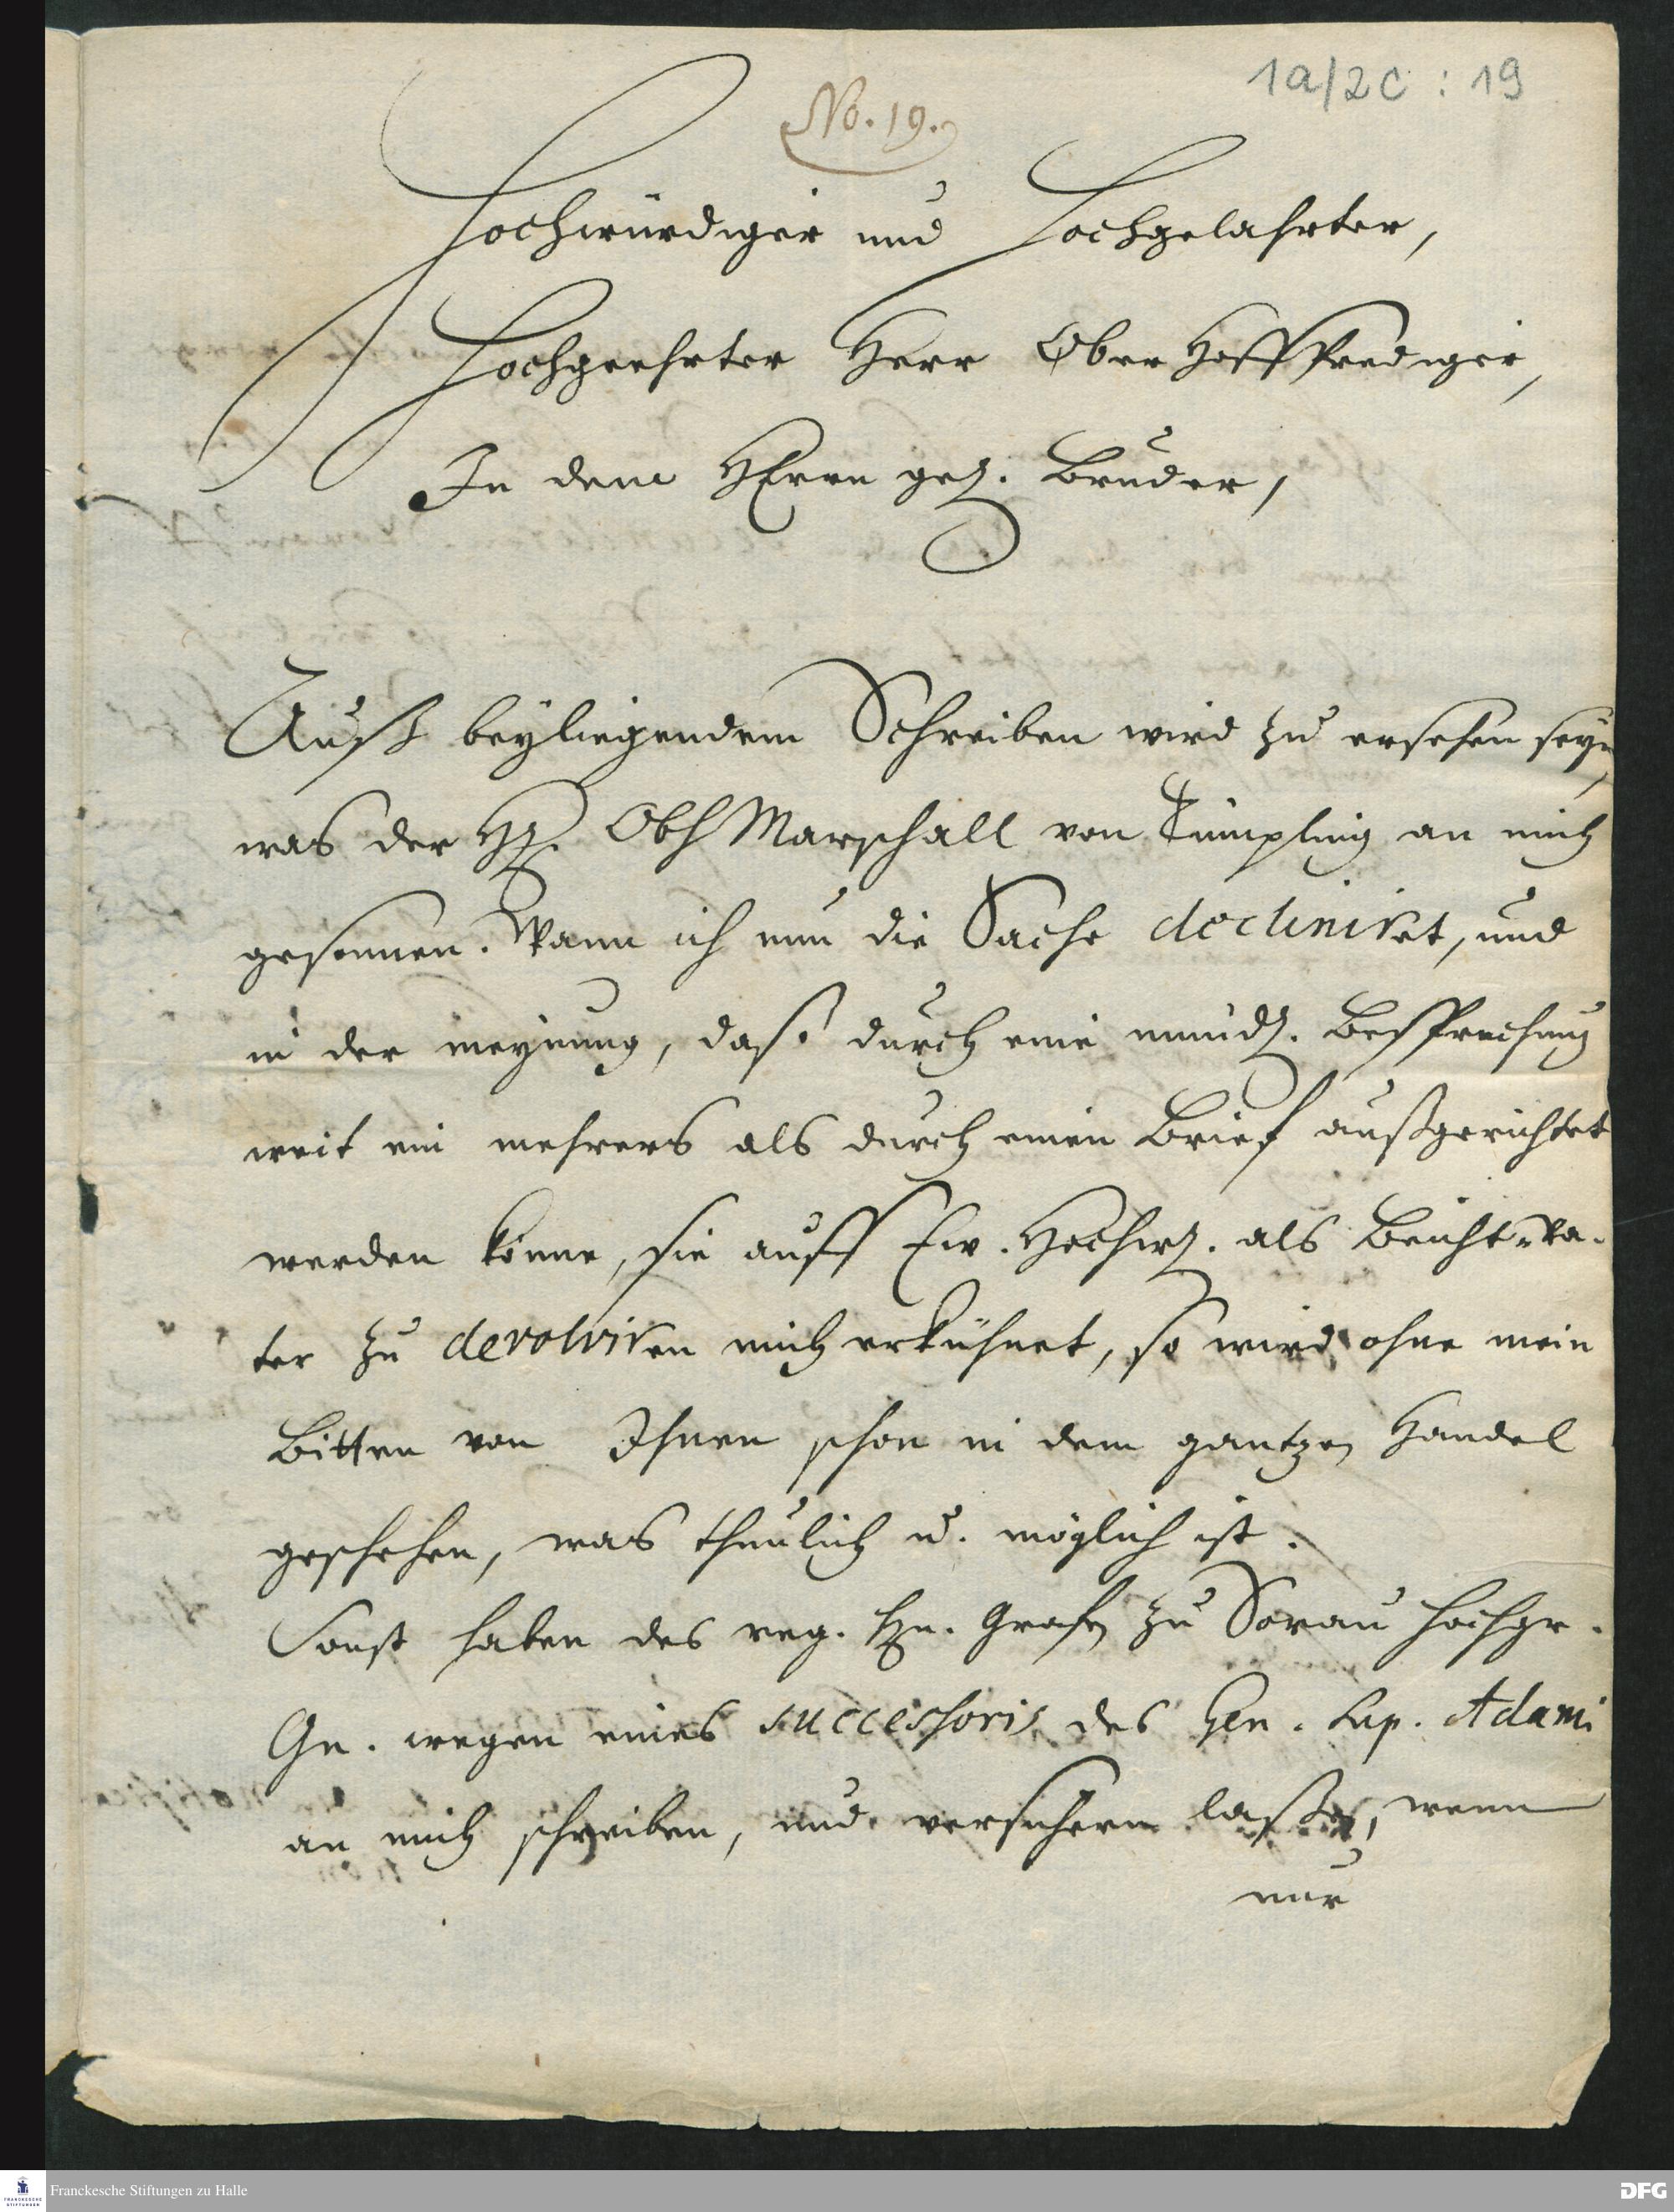 1a/2c : 19
No. 19.
Hochwürdiger und Hochgelahrter,
Hochgeehrter Herr Ober Hoffprediger,
In dem HErrn gel. Bruder,
Auß beyliegendem Schreiben wird zu ersehen seyn,
was der H. Obh Marschall von Tümpling an mich
gesonnen. Wann ich nun die Sache decliniret, und
in der meynung, daß durch eine mündl. Besprechung
weit ein mehrers als durch einen Brief außgerichtet
werden könne, sie auff Ew. Hochw. als Beicht-Va-
ter zu devolviren mich erkühnet, so wird ohne mein
Bitten von Ihnen schon in dem gantzen Handel
geschehen, was thunlich u. möglich ist.
Sonst haben des reg. Hn. Grafen zu Sorau Hochgr.
Gn. wegen eines successoris des Hen. Sup. Adami
an mich schreiben, und versichern laßen, wenn
nur
Franckesche Stiftungen zu Halle
DFG